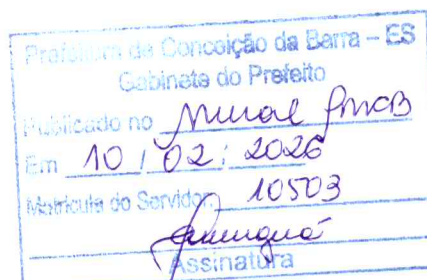 Prefeitura de Conceição da Barra – ES
Gabinete do Prefeito
Publicado no Mural PMCB
Em 10 / 02 / 2026
Matrícula do Servidor: 10503
Assinatura